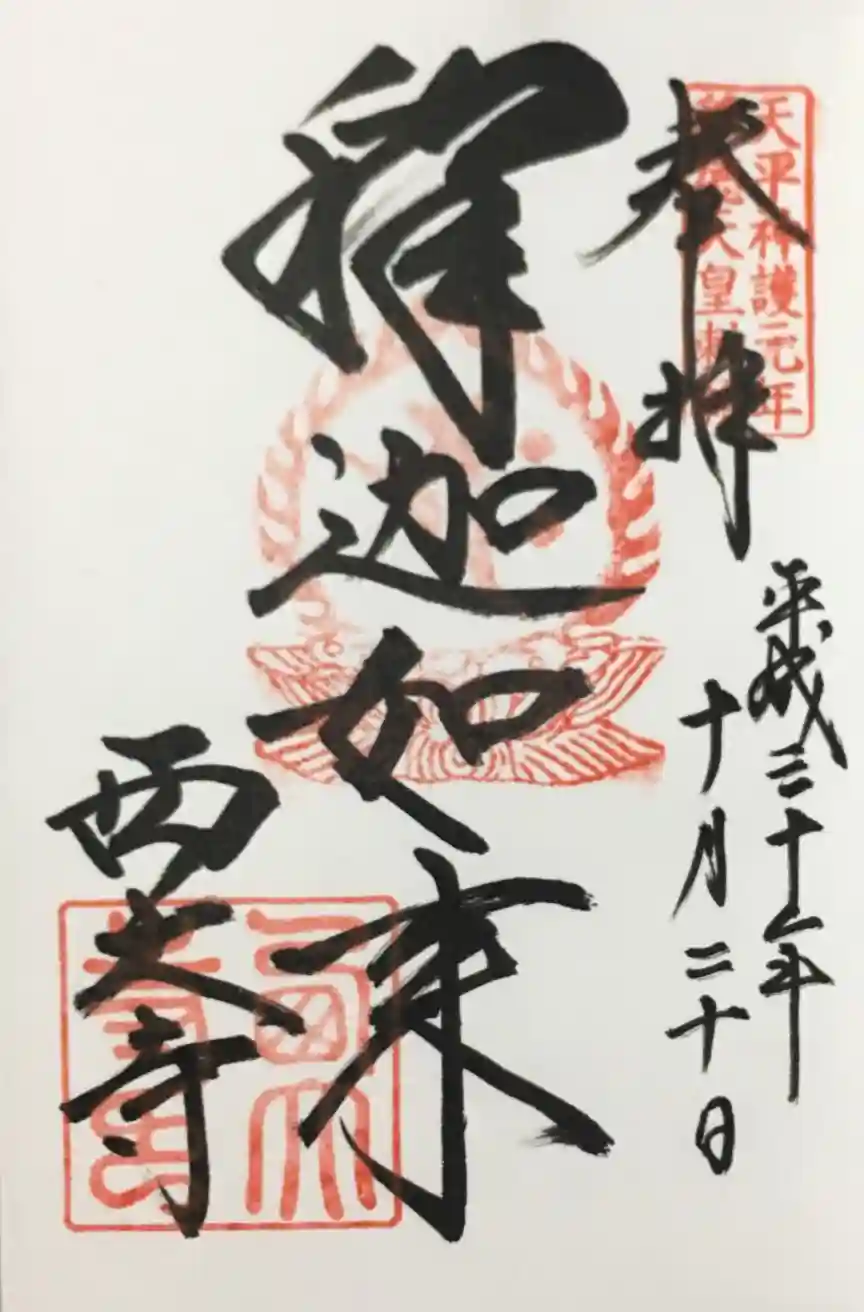 天平神護元年
天皇勅
奉拝
平成三十年
十月二十日
釋迦如来
西大寺
西大
寺印